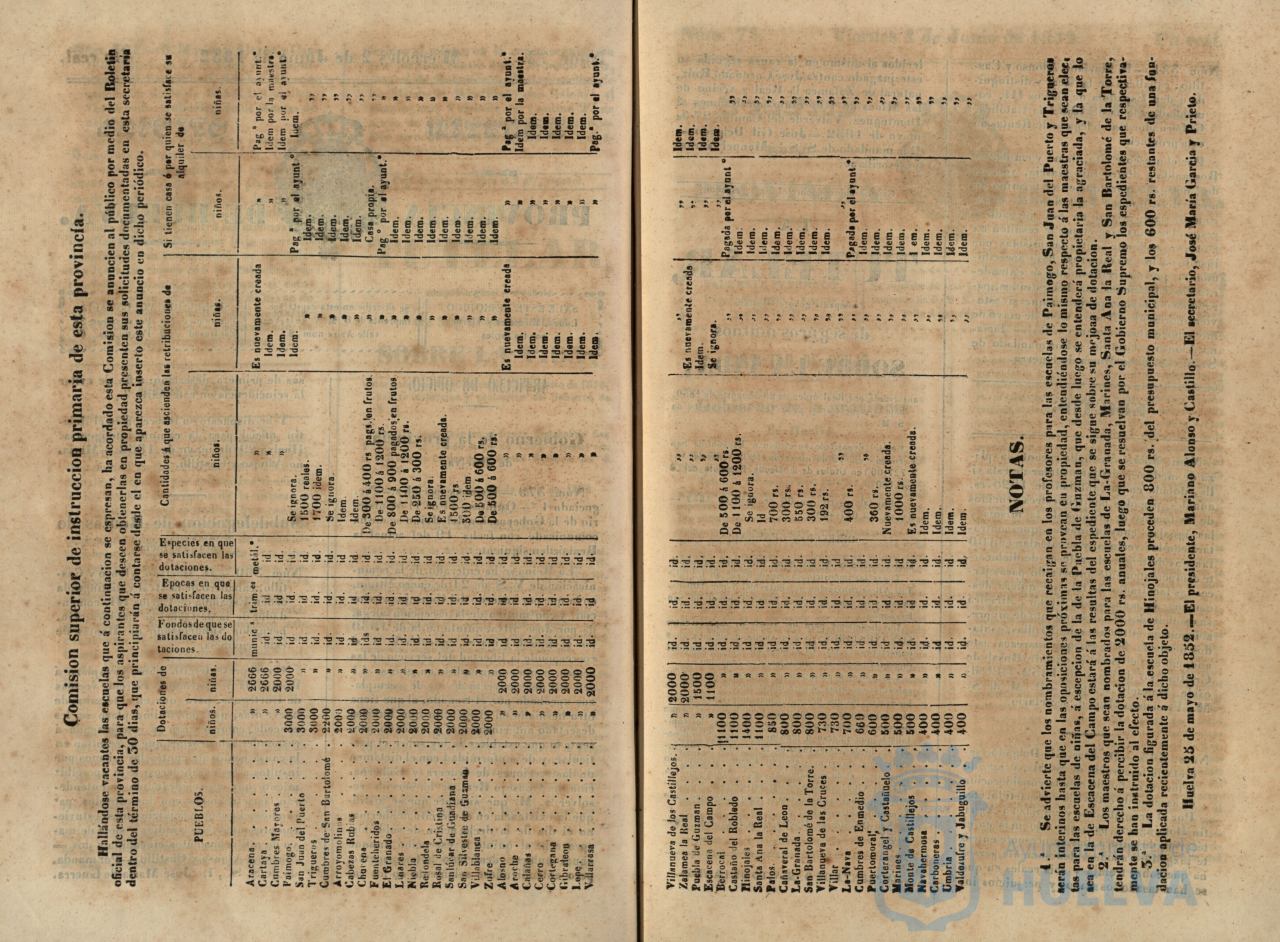 Comision superior de instruccion primaria de esta provincia.
Hallándose vacantes las escuelas que á continuacion se espresan, ha acordado esta Comision se anuncien al público por medio del Boletin
oficial de esta provincia, para que los aspirantes que deseen obtenerlas en propiedad presenten sus solicitudes documentadas en esta secretaria
dentro del término de 30 dias, que principiarán á contarse desde el en que aparezca inserto este anuncio en dicho periódico.
PUEBLOS. Dotaciones de niños. niñas. Fondos de que se satisfacen las dotaciones. Epocas en que se satisfacen las dotaciones. Especies en que se satisfacen las dotaciones. Cantidades á que ascienden las retribuciones de niños. niñas. Si tienen casa ó por quien se satisface su alquiler de niños. niñas.
Aracena. » 2666 munic.s trim.es metál.º » Es nuevamente creada » Pag.ª por el ayunt.º
Cartaya » 2666 id. id. id » Idem. » Idem por la maestra.
Cumbres Mayores » 2000 id. id. id. » Idem. » Idem por el ayunt.º
Paimogo. 3000 2000 id. id. id. Se ignora. Idem. Pag.ª por el ayunt.º Idem.
San Juan del Puerto 3000 » id. id. id. 1500 reales. » Idem. »
Trigueros 3000 » id. id. id. 1700 idem. » Idem. »
Cumbres de San Bartolomé 2200 » id. id. id. Se ignora. » Idem. »
Arroyomolinos 2000 » id. id. id. Idem » Idem. »
Cabezas Rubias 2000 » id. id. id. Idem. » Idem. »
Chucena 2000 » id. id. id. De 300 á 400 rs pags. en frutos. » Casa propia. »
Fuenteheridos 2000 » id. id. id. De 1100 á 1200 rs. » Pag.ª por el ayunt.º »
El Granado 2000 » id. id. id. De 800 á 900 pagados en frutos » Idem. »
Linares 2000 » id. id. id. De 1100 á 1200 rs. » Idem. »
Niebla 2000 » id. id. id. De 250 á 300 rs. » Idem. »
Redondela 2000 » id. id. id. Se ignora. » Idem. »
Rosal de Cristina 2000 » id. id. id. Es nuevamente creada. » Idem. »
Sanlúcar de Guadiana 2000 » id. id. id. 1500 rs » Idem. »
San Silvestre de Guzman 2000 » id. id. id. 300 idem » Idem. »
Villablanca 2000 » id. id. id. De 500 á 600 rs. » Idem. »
Zufre 2000 » id. id. id. De 500 á 600 rs. » Idem. »
Alosno » 2000 id. id. id. » Es nuevamente creada » Pag.ª por el ayunt.º
Aroche » 2000 id. id. id. » Idem. » Idem por la maestra.
Calañas » 2000 id. id. id. » Idem. » Idem.
Cerro » 2000 id. id. id. » Idem. » Idem.
Cortegana » 2000 id. id. id. » Idem. » Idem.
Gibraleon » 2000 id. id. id. » Idem. » Idem.
Lepe » 2000 id. id. id. » Idem. » Idem.
Villarrasa » 2000 id. id. id. » Idem. » Pag.ª por el ayunt.º
Villanueva de los Castillejos. » 2000 id. id. id. » Es nuevamente creada » Idem.
Zalamea la Real » 2000 id. id. id. » Idem. » Idem.
Puebla de Guzman » 1500 id. id. id. » Se ignora. » Idem.
Escacena del Campo » 1100 id. id. id. » » » Idem.
Berrocal 1100 » id. id. id. De 500 á 600 rs » Pagada por el ayunt.º »
Castaño del Robledo 1100 » id. id. id. De 1100 á 1200 rs. » Idem. »
Hinojales 1400 » id. id. id. Se ignora. » Idem. »
Santa Ana la Real 1100 » id. id. id. Id » Idem. »
Palos 850 » id. id. id. 700 rs. » Idem. »
Cañaveral de Leon 800 » id. id. id. 300 rs. » Idem. »
La-Granada 800 » id. id. id. 550 rs. » Idem. »
San Bartolomé de la Torre. 800 » id. id. id. 300 rs. » Idem. »
Villanueva de las Cruces 730 » id. id. id. 192 rs. » Idem. »
Villar 730 » id. id. id. » » »
La-Nava 700 » id. id. id. 400 rs. » Pagada por el ayunt.º »
Cumbres de Enmedio 660 » id. id. id. » » Idem. »
Puertomoral 600 » id. id. id. 360 rs. » Idem. »
Corterangel y Castañuelo 500 » id. id. id. Nuevamente creada. » Idem. »
Marines 500 » id. id. id. 1000 rs. » Idem. »
Monte de Castillejos 500 » id. id. id. Es nuevamente creada. » Idem. »
Navahermosa 400 » id. id. id. Idem. » Idem. »
Carboneras 400 » id. id. id. Idem. » Idem. »
Umbria 400 » id. id. id. Idem. » Idem. »
Valdezufre y Jabuguillo 400 » id. id. id. Idem. » Idem. »
NOTAS.
1.ª Se advierte que los nombramientos que recaigan en los profesores para las escuelas de Paimogo, San Juan del Puerto y Trigueros
serán interinos hasta que en las oposiciones próximas se provean en propiedad, entendiéndose lo mismo respecto á las maestras que sean elec-
tas para las escuelas de niñas, á escepcion de la de la Puebla de Guzman, que desde luego se entenderá propietaria la agraciada, y la que lo
sea en la de Escacena del Campo estará á las resultas del espediente que se sigue sobre su mejora de dotacion.
2.ª Los maestros que sean nombrados para las escuelas de La-Granada, Marines, Santa Ana la Real y San Bartolomé de la Torre,
tendrán derecho á percibir la dotacion de 2000 rs. anuales, luego que se resuelvan por el Gobierno Supremo los espedientes que respectiva-
mente se han instruido al efecto.
3.ª La dotacion figurada á la escuela de Hinojales proceden 800 rs. del presupuesto municipal, y los 600 rs. restantes de una fun-
dacion aplicada recientemente á dicho objeto.
Huelva 25 de mayo de 1852.—El presidente, Mariano Alonso y Castillo.—El secretario, José María Garcia y Prieto.
HUELVA